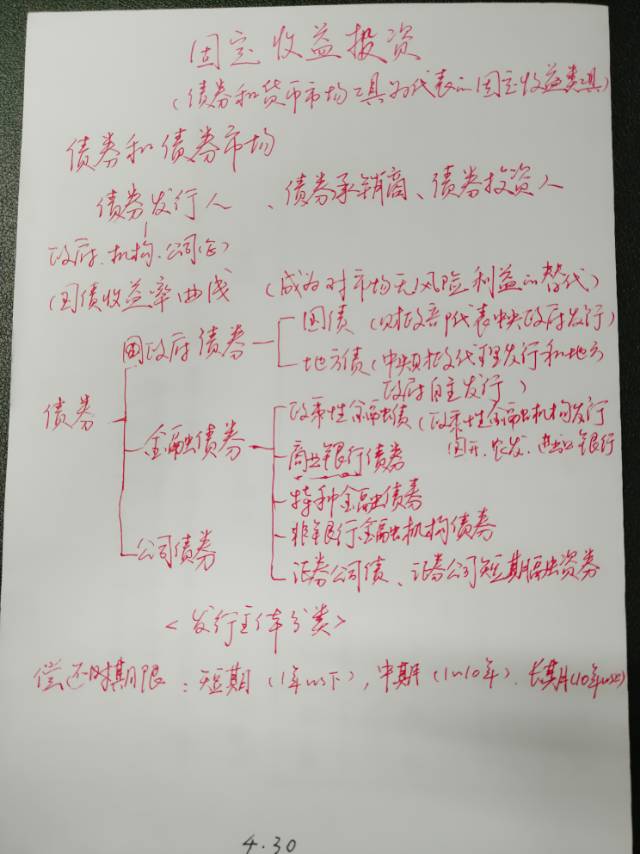 固定收益投资
(债券和货币市场工具为代表的固定收益类工具)
债券和债券市场
债券发行人、债券承销商、债券投资人
政府、机构、公司(企)
(国债收益率曲线 (成为对市场无风险利益的替代)
债券
政府债券
国债 (财政部代表中央政府发行)
地方债 (中央财政代理发行和地方
政府自主发行)
金融债券
政策性金融债 (政策性金融机构发行
国开、农发、进出口银行
商业银行债券
特种金融债券
非银行金融机构债券
证券公司债、证券公司短期融资券
公司债券
<发行主体分类>
偿还期限:短期(1年以下),中期(1~10年).长期(10年以上)
4.30